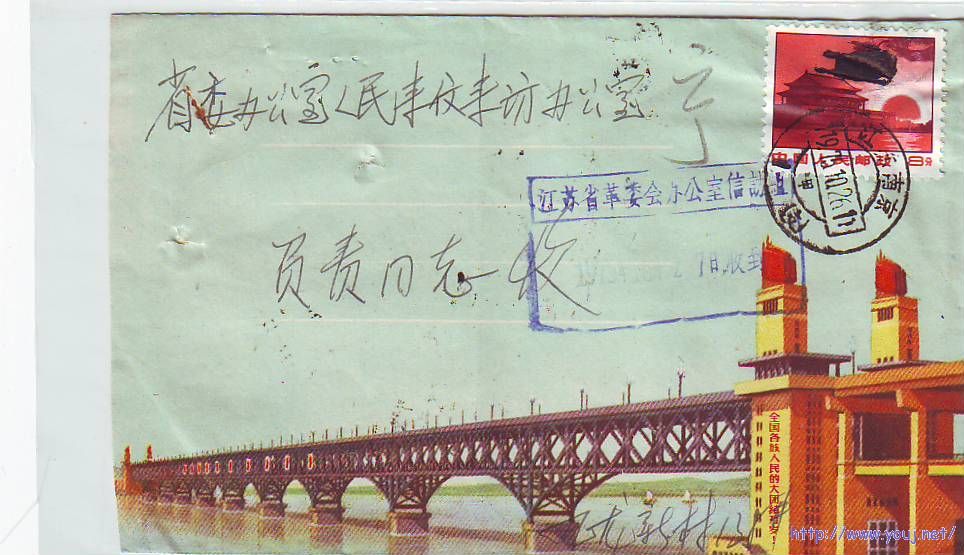 省委办公室人民来信来访办公室
中国人民邮政 8分
江苏南京
10.26
江苏省革委会办公室信访组
日收到
负责同志 收
全国各族人民的大团结万岁!
http://www.youj.net/